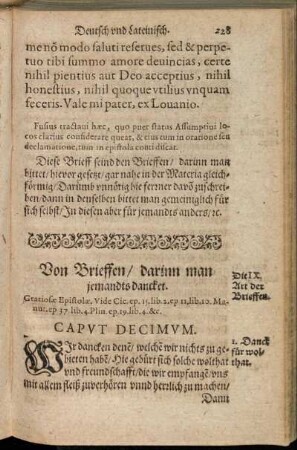 Deutsch vnd Lateinisch. 228
me nō modo saluti resetues, sed & perpe-
tuo tibi summo amore deuincias, certe
nihil pientius aut Deo acceptius, nihil
honestius, nihil quoque vtilius vnquam
feceris. Vale mi pater, ex Louanio.
Fusius tractaui hæc, quo puer status Assumptiui lo-
cos clarius considerare queat, & eis tum in oratione seu
declamatione, tum in epistola
Diese Brieff seind den Brieffen / darinn man
bittet / hievor gesetz / gar nahe in der Materia gleich-
förmig / Darumb vnnötig hie ferner davō zuschrei-
ben / dann in denselben bittet man gemeiniglich für
sich selbst / In diesen aber für jemandts anders / ꝛc.
Von Brieffen / darinn man
jemandts dancket.
Die IX.
Art der
Brieffen.
Gratiosæ Epistolæ, Vide Cic. ep. 11. lib. 2. ep 11, lib. 10. Ma-
nut. ep 37 lib. 4. Plin. ep. 19. lib. 4. &c.
CAPVT DECIMVM.
WIr dancken denē / welchē wir nichts zu ge-
bieten habē / Hie gebürt sich solche wolthat
vnd freundschafft / die wir empfangē / vns
mit allem fleiß zuverhören vnnd herrlich zu machen /
1. Danck
für wol-
that.
Dann